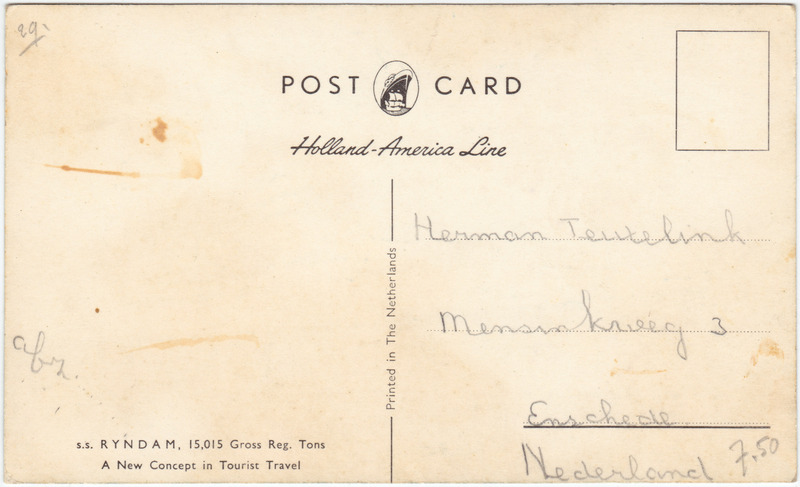 29.
POST CARD
Holland-America Line
Printed in The Netherlands
Herman Teutelink
3
Enschede
Nederland
7.50
afz.
s.s. RYNDAM, 15,015 Gross Reg. Tons
A New Concept in Tourist Travel